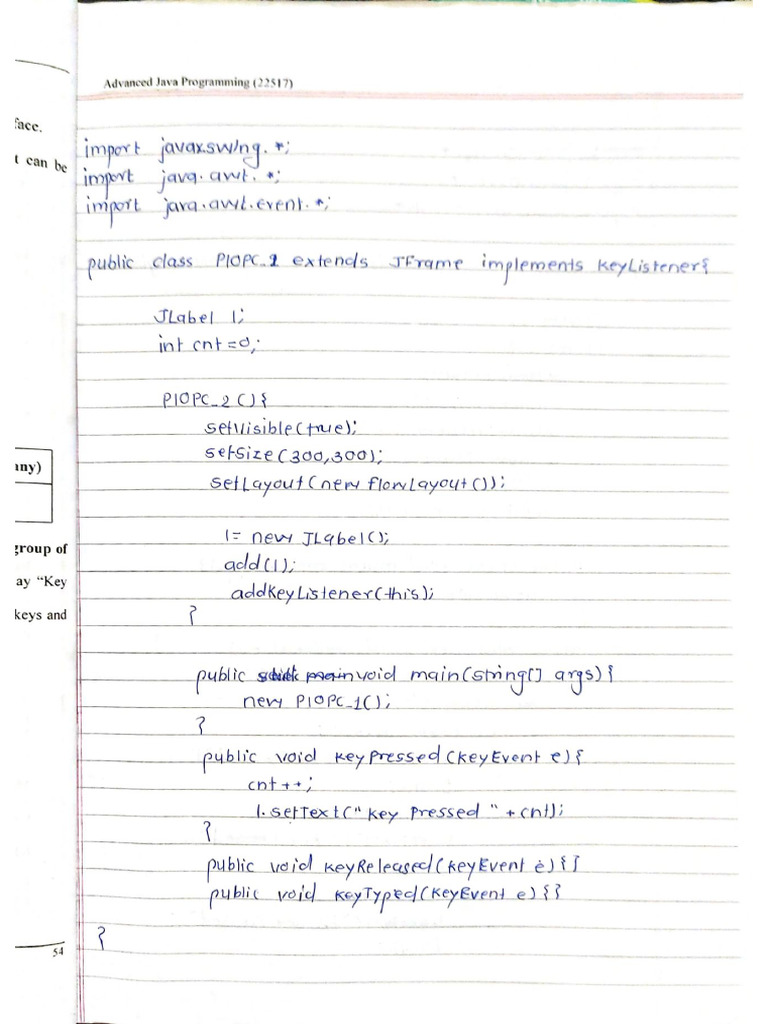 Advanced Java Programming (22517)
face.
t can be
import javax.swing.*;
import java.awt.*;
import java.awt.event.*;
public class P10PC_1 extends JFrame implements KeyListener{
JLabel l;
int cnt=0;
P10PC_2(){
setVisible(true);
setSize(300,300);
setLayout(new flowLayout());
any)
l= new JLabel();
group of
add(l);
ay "Key
addKeyListener(this);
keys and
}
public void main(string[] args){
new P10PC_1();
}
public void keyPressed(KeyEvent e){
cnt++;
l.setText("Key Pressed "+cnt);
}
public void keyReleased(keyEvent e){}
public void keyTyped(KeyEvent e){}
}
54